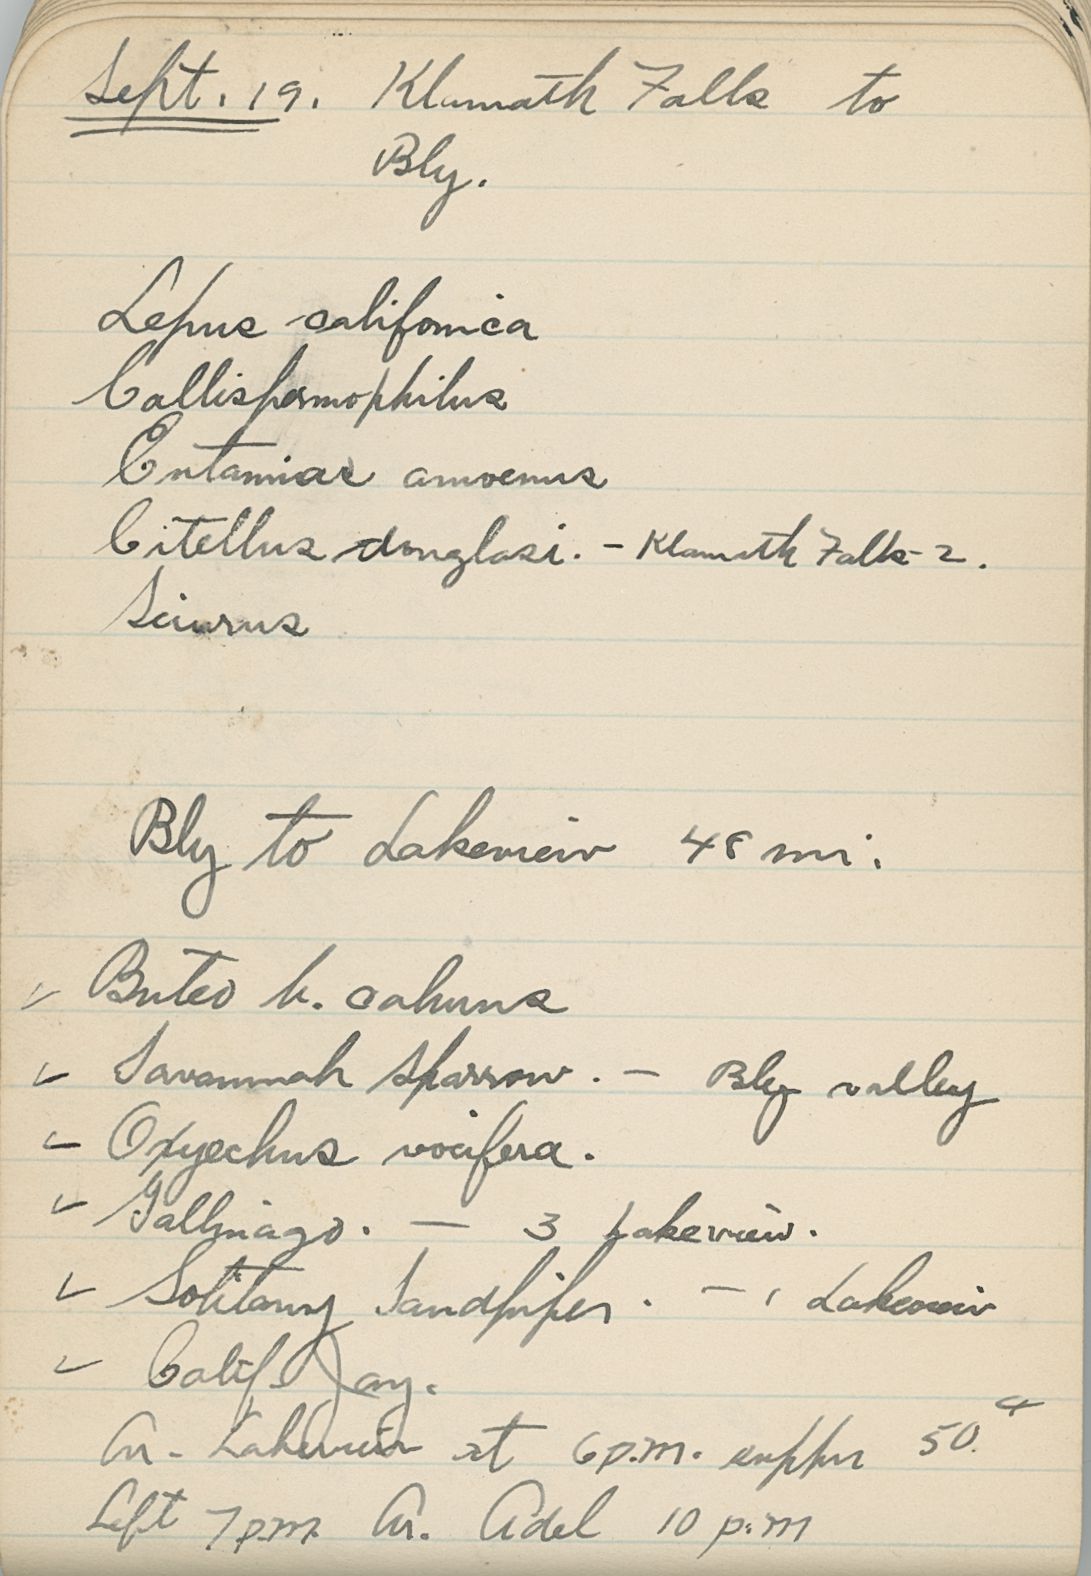 Sept. 19. Klamath Falls to
Bly.
Lepus califonica
Callispermophilus
Eutamias amoenus
Citellus douglasi. - Klamath Falls - 2.
Sciurus
Bly to Lakeview 48 mi.
Buteo b. calurus
Savannah Sparrow. - Bly valley
Oxyechus vocifera.
Gallinago. - 3 Lakeview.
Solitary Sandpiper. - 1 Lakeview
Calif Jay.
Ar. Lakeview at 6 p.m. supper 50
Left 7 p.m. Ar. Adel 10 p.m